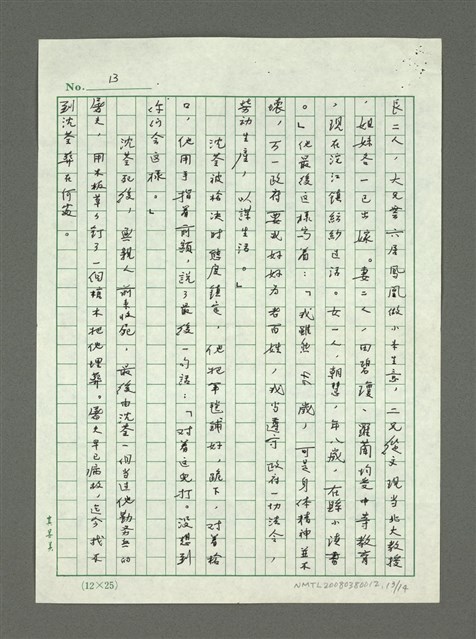 No. 13
長二人，大兄雲六居鳳凰做小本生意，二兄從文現当北大教授
，姐妹各一已出嫁。妻二人，田碧瓊、羅蘭均受中等教育
，現在沅江鎮紡紗过活。女一人，朝慧，年八歲，在縣小讀書
。」他最後这樣写着：「我雖然 歲，可是身体精神並不
壞，万一政府要我好好为老百姓，我当遵守政府一切法令，
劳动生產，以謀生活。」
沈荃被槍決时態度鎮定，他把軍毯鋪好，跪下，对着槍
口，他用手指着前額，說了最後一句話：「对着这兒打。沒想到
你们会这樣。」
沈荃死後，無親人前來收屍，最後由沈荃一個当过他勤务兵的
屠夫，用木板草草釘了一個棺木把他埋葬。屠夫早已病故，迄今找不
到沈荃葬在何處。
(12×25)
NMTL20080380012.13/14